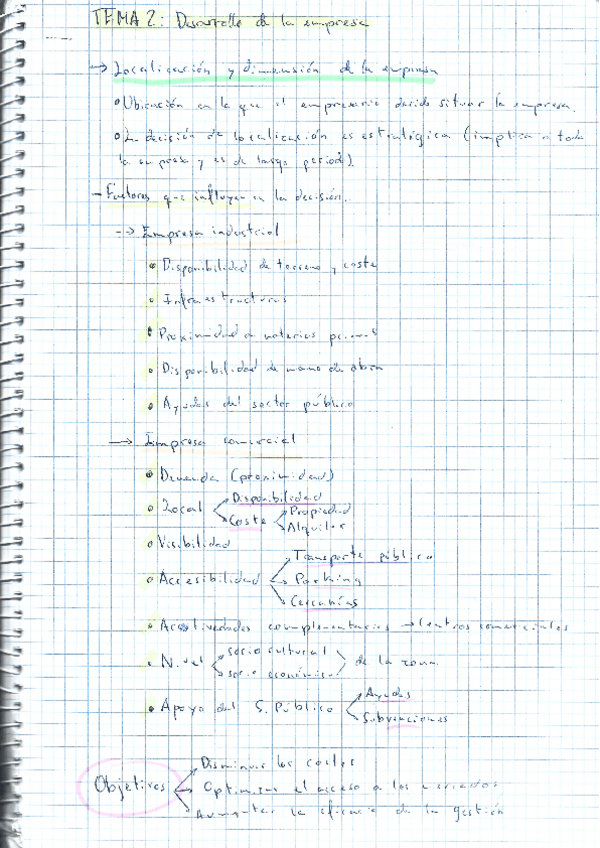 TEMA 2: Desarrollo de la empresa
→ Localización y dimensión de la empresa
• Ubicación en la que el empresario decide situar la empresa.
• La decisión de localización es estratégica (implica a toda
la empresa y es de largo period).
- Factores que influyen en la decisión.
--> Empresa industrial
• Disponibilidad de terreno y coste
• Infraestructuras
• Proximidad a materias primas
• Disponibilidad de mano de obra
• Ayudas del sector público
→ Empresa comercial
• Demanda (proximidad)
• Local Disponibilidad
Coste Propiedad
Alquiler
• Visibilidad
• Accesibilidad Transporte público
Parking
Cercanías
• complementarias → Centros comerciales
• Nivel socio cultural
socio económico de la zona
• Apoyo del S. Público Ayudas
Subvenciones
Objetivos Disminuir los costes
Optimizar el acceso a los mercados
Aumentar la eficacia de la gestión